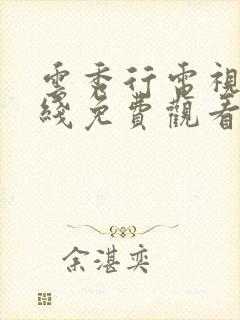 雲秀行電視
綫免費觀看
余湛奕